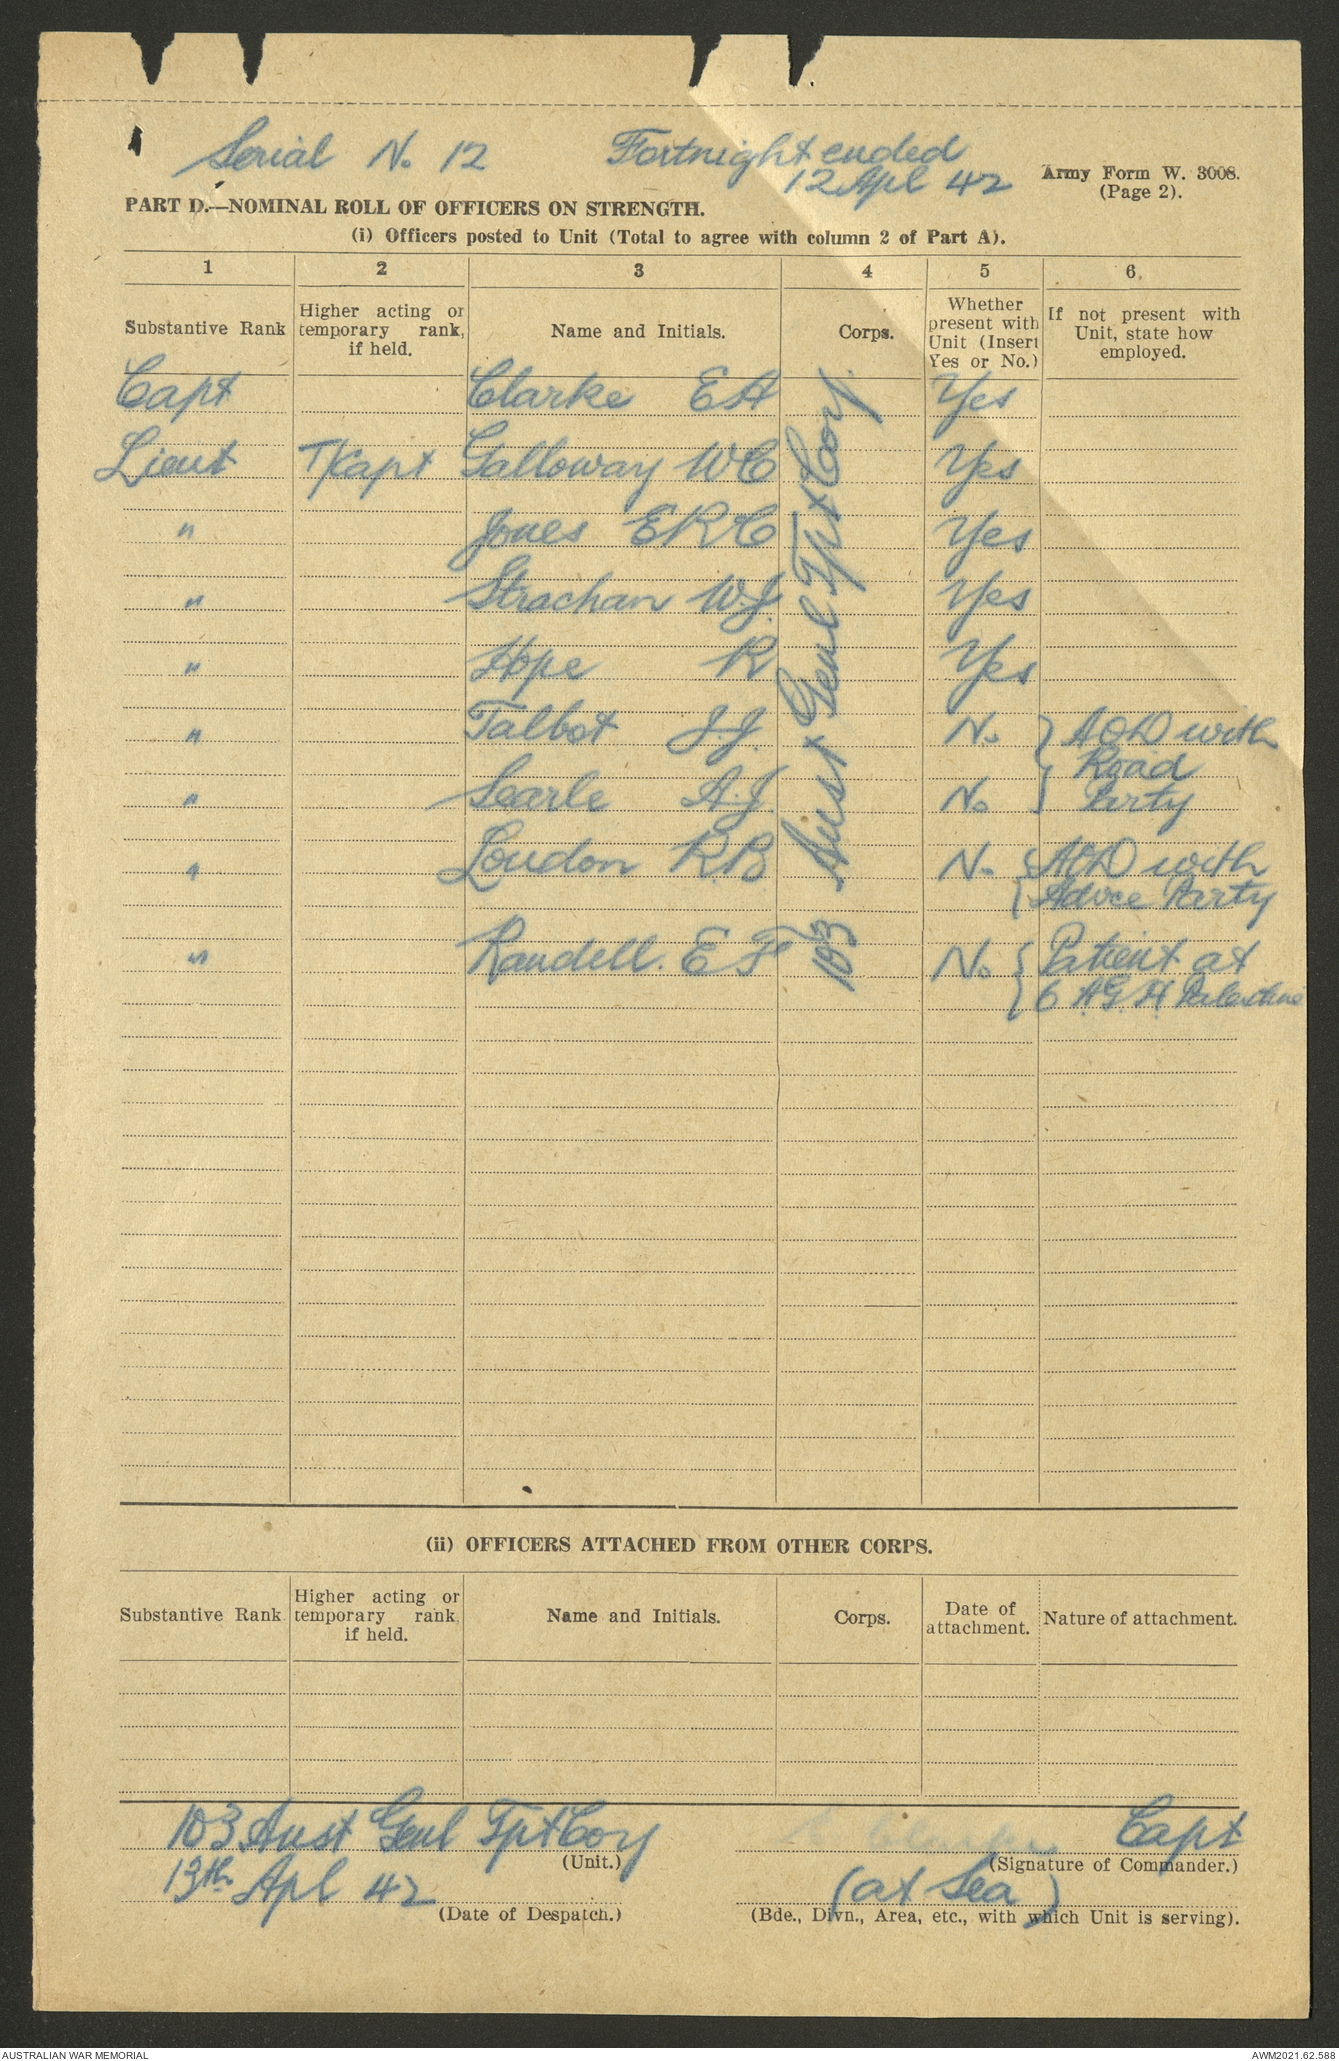 Serial No. 12 Fortnight ended
12 Apl 42
Army Form W. 3008.
(Page 2).
PART D.—NOMINAL ROLL OF OFFICERS ON STRENGTH.
(i) Officers posted to Unit (Total to agree with column 2 of Part A).
1 2 3 4 5 6
Substantive Rank
Higher acting or
temporary rank,
if held.
Name and Initials.
Corps.
Whether
present with
Unit (Insert
Yes or No.)
If not present with
Unit, state how
employed.
Capt Clarke E A Yes
Lieut T/Capt Galloway W C Yes
" Jones E R C Yes
" Strachan W.J. Yes
" Hope R Yes
" Talbot J.J. No. } AOD with
Road
" Searle A.J. No. Party
" Loudon R.B. No. { AOD with
Advce Party
" Randell. E F No. { Patient at
6 A.G.H. Palestine
103 Aust Genl Tpt Coy.
(ii) OFFICERS ATTACHED FROM OTHER CORPS.
Substantive Rank
Higher acting or
temporary rank,
if held.
Name and Initials.
Corps.
Date of
attachment.
Nature of attachment.
103 Aust Genl Tpt Coy Clarke Capt
(Unit.) (Signature of Commander.)
13th Apl 42 (at Sea)
(Date of Despatch.) (Bde., Divn., Area, etc., with which Unit is serving).
AUSTRALIAN WAR MEMORIAL AWM2021.62.588